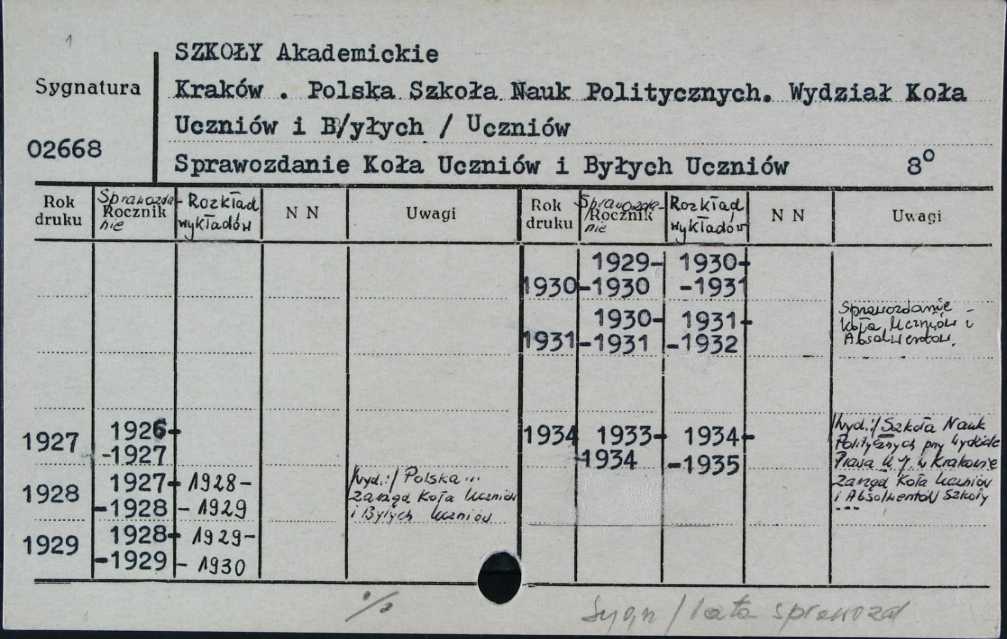 1
SZKOŁY Akademickie
Sygnatura
Kraków . Polska Szkoła Nauk Politycznych. Wydział Koła
Uczniów i B/yłych / Uczniów
02668
Sprawozdanie Koła Uczniów i Byłych Uczniów 8°
Rok druku
Sprawozdanie
Rocznik
Rozkład wykładów
N N
Uwagi
Rok druku
Sprawozdanie
Rocznik
Rozkład wykładów
N N
Uwagi
1927 1926-
-1927
1928 1927- 1928-
-1928 -1929
Wyd.:/ Polska...
Zarząd Koła Uczniów
i Byłych Uczniów
1929 1928- 1929-
-1929 -1930
1929- 1930-
1930 -1930 -1931
1930- 1931-
1931 -1931 -1932
Sprawozdanie -
Koła Uczniów i
Absolwentów.
1934 1933- 1934-
-1934 -1935
Wyd.:/ Szkoła Nauk
Politycznych przy Wydziale
Prawa U.J. w Krakowie
Zarząd Koła Uczniów
i Absolwentów Szkoły
---
%
Sygn / lata sprawozd